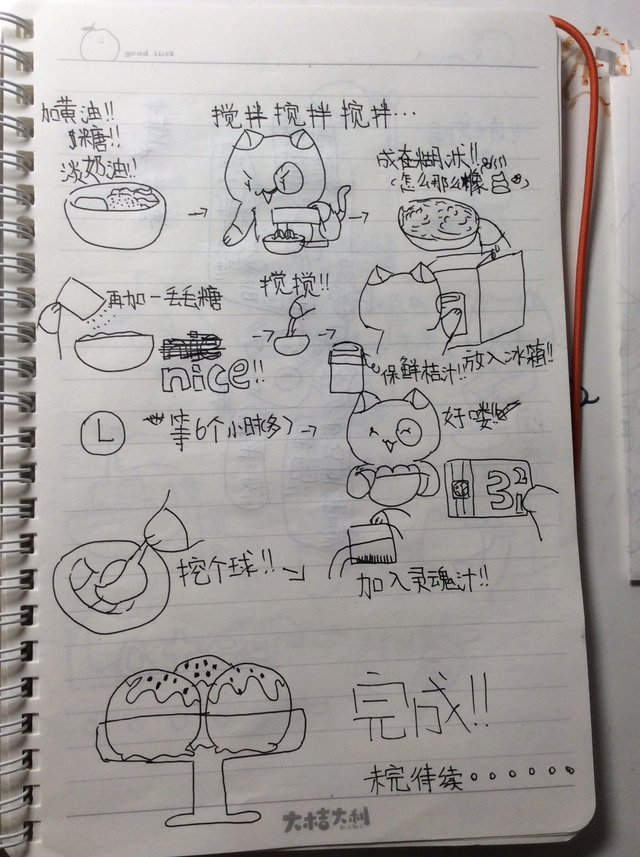 good luck
加黄油!!
糖!!
淡奶油!!
搅拌搅拌搅拌…
成在糊状!!
(怎么那么像
再加一丢丢糖
nice!!
搅搅!!
保鲜桔汁!!
放入冰箱!!
L
等6个小时(多)
好喽!!
321
挖个球!!
加入灵魂汁!!
完成!!
未完待续。。。。。。
大桔大利